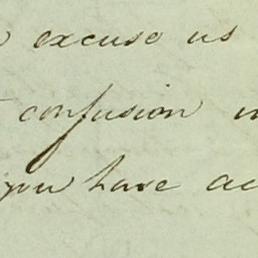 excuse us
confusion
you have